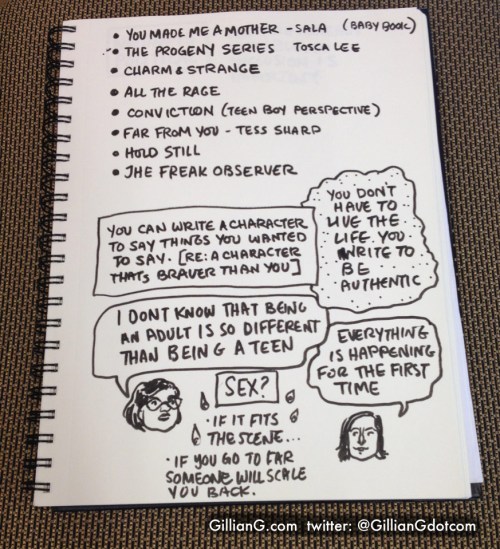 • YOU MADE ME A MOTHER - SALA (BABY BOOK)
• THE PROGENY SERIES TOSCA LEE
• CHARM & STRANGE
• ALL THE RAGE
• CONVICTION (TEEN BOY PERSPECTIVE)
• FAR FROM YOU - TESS SHARP
• HOLD STILL
• THE FREAK OBSERVER
YOU CAN WRITE A CHARACTER
TO SAY THINGS YOU WANTED
TO SAY. [RE: A CHARACTER
THATS BRAVER THAN YOU]
YOU DON'T
HAVE TO
LIVE THE
LIFE. YOU
WRITE TO
BE
AUTHENTIC
I DONT KNOW THAT BEING
AN ADULT IS SO DIFFERENT
THAN BEING A TEEN
EVERYTHING
IS HAPPENING
FOR THE FIRST
TIME
SEX?
• IF IT FITS
THE SCENE...
• IF YOU GO TO FAR
SOMEONE WILL SCALE
YOU BACK.
GillianG.com twitter: @GillianGdotcom